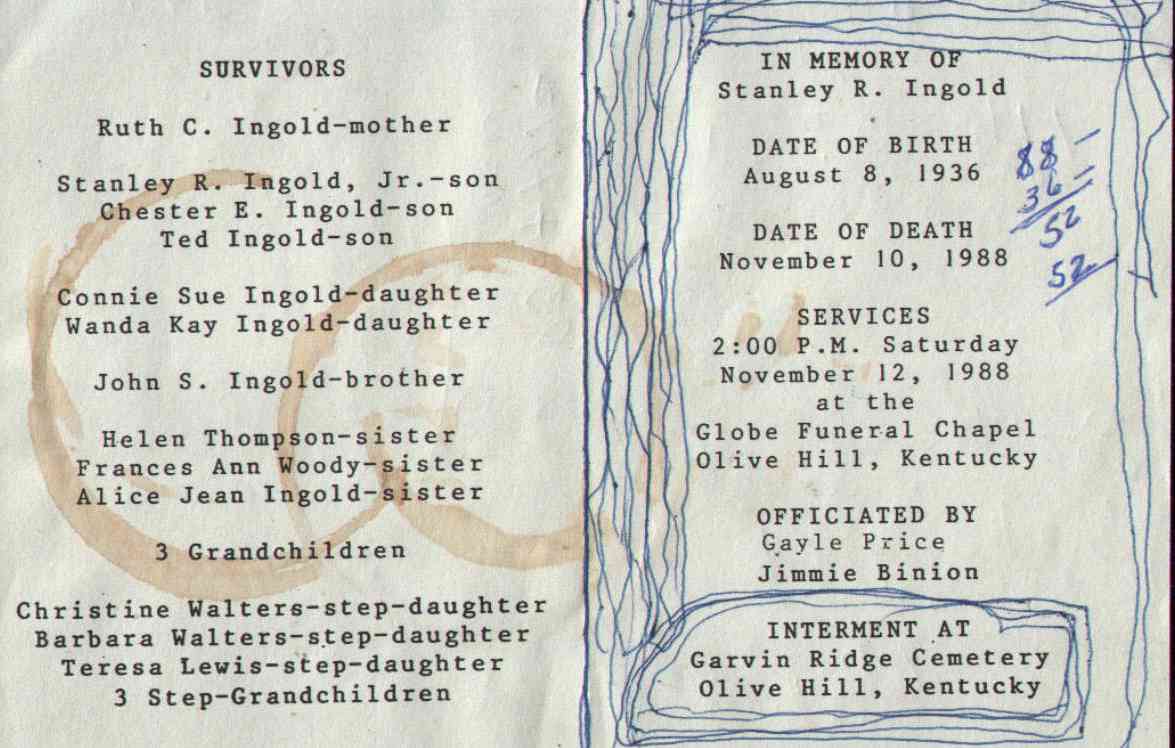 SURVIVORS
Ruth C. Ingold-mother
Stanley R. Ingold, Jr.-son
Chester E. Ingold-son
Ted Ingold-son
Connie Sue Ingold-daughter
Wanda Kay Ingold-daughter
John S. Ingold-brother
Helen Thompson-sister
Frances Ann Woody-sister
Alice Jean Ingold-sister
3 Grandchildren
Christine Walters-step-daughter
Barbara Walters-step-daughter
Teresa Lewis-step-daughter
3 Step-Grandchildren
IN MEMORY OF
Stanley R. Ingold
DATE OF BIRTH
August 8, 1936
DATE OF DEATH
November 10, 1988
SERVICES
2:00 P.M. Saturday
November 12, 1988
at the
Globe Funeral Chapel
Olive Hill, Kentucky
OFFICIATED BY
Gayle Price
Jimmie Binion
INTERMENT AT
Garvin Ridge Cemetery
Olive Hill, Kentucky
88
36
52
52